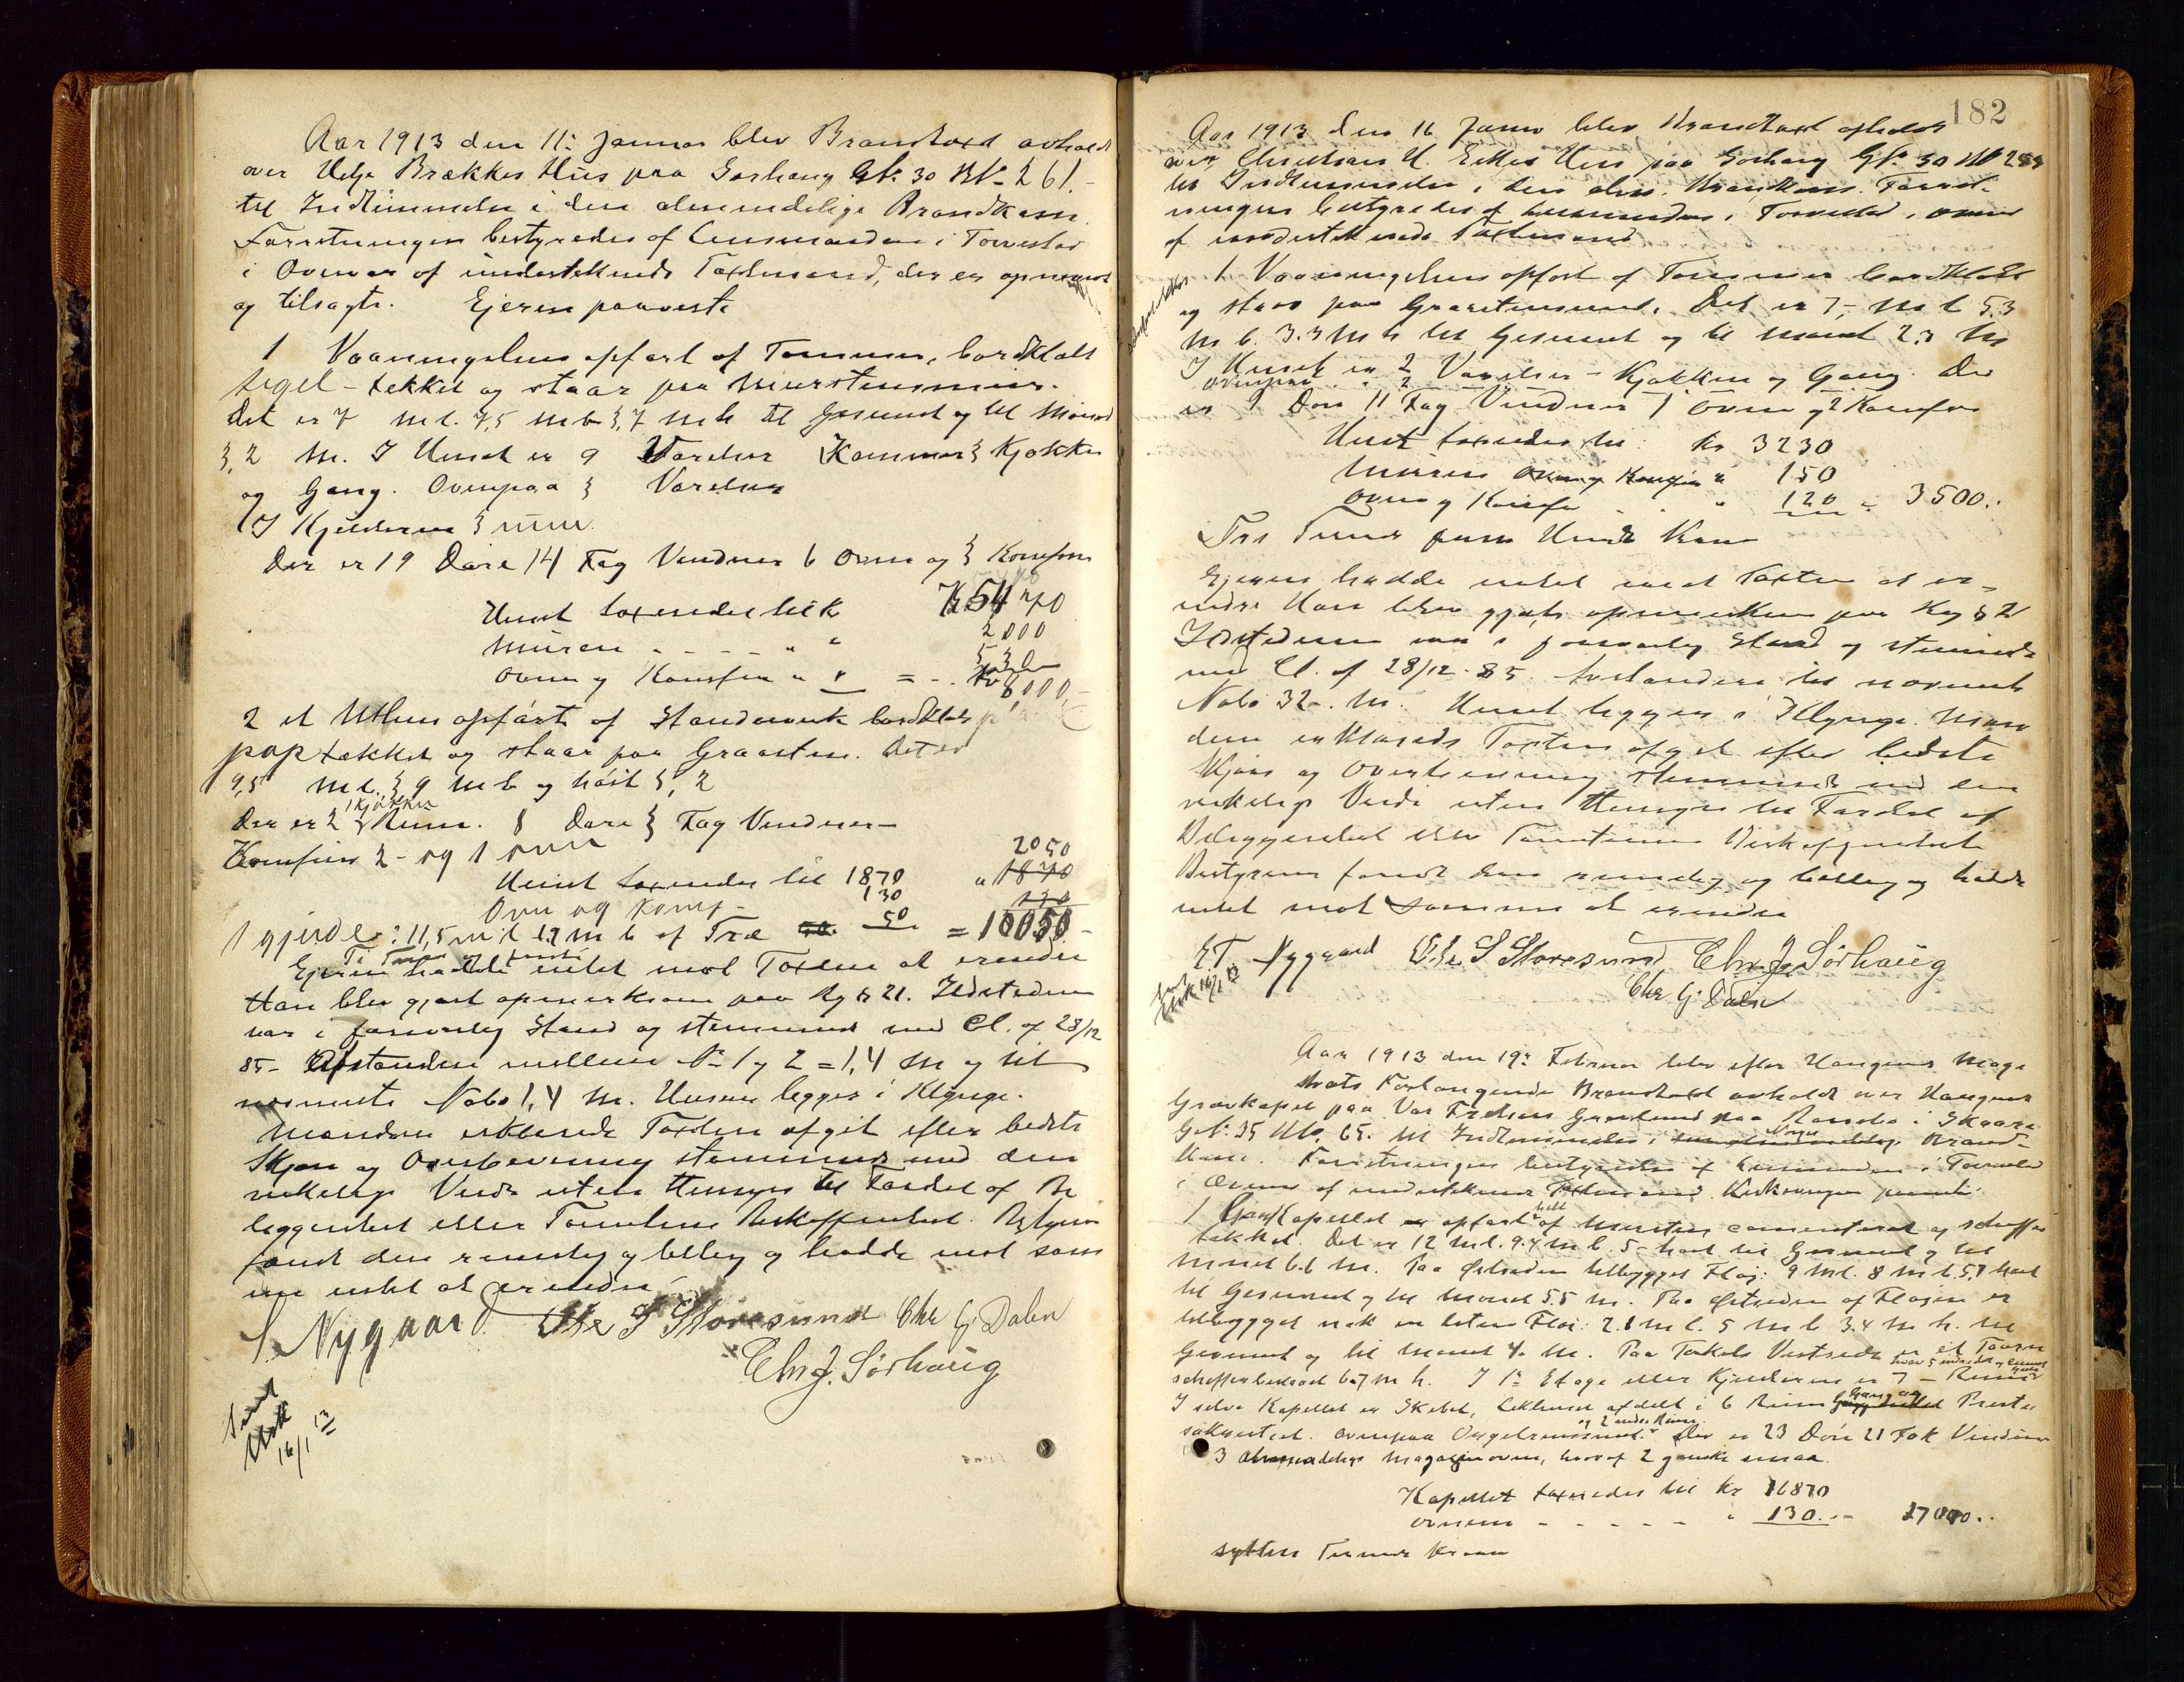 Aar 1913 den 11. Januar blev Brandtaxt avholdt
over Helge Brækkes Hus paa Sørhaug Gr. 30 Br. 261.-
til Indlemmelse i den almindelige Brandkasse
Forretningen bestyredes af Lensmanden i Torvestad
i Overvær af undertegnede Taxtmænd, der er opnævnt
og tilsagte. Ejeren paaviste
1 Vaaningshus opført af Tømmer, bordklædt
tegl-tækket og staar paa Murstensmur.
Det er 7 m l. 7,5 m b 3,7 m h til Gesims og til Mønet
3,2 m. I Huset er 9 Værelser Kammer 3 Kjøkken
og Gang. Ovenpaa 3 Værelser
I Kjelderen 3 rum
Der er 19 Døre 14 Fag Vinduer 6 Ovne og 3 Komfur
Huset taxeredes til kr 5470
Muren - - - - " " 2000
Ovne og Komfur " " = - . 530 8000,-
2 et Uthus opført af Standverk bordklædt
pap tækket og staar paa Graasten. Det er
9,5 m l. 3,9 m b og høit 3,2
1 Kjøkken
Der er 2 Rum. 8 Døre 3 Fag Vinduer -
Komfur 2 - og 1 ovn 2050
Huset taxeredes til 1870 " 1870
Ovn og Komf - 130 130
1 gjerde: 11,5 m l 1.7 m b af Træ 50 = 10050 -
Ti Tusen og femti
Ejeren hadde intet mot Taxten at erindre
Han blev gjort opmerksom paa Reg § 21. Ildstederne
var i forsvarlig Stand og stemmende med Cl. af 28/12
85 - Afstanden mellem No 1 og 2 = 1,4 m og til
nærmeste Nabo 1,4 m. Husene ligger i Klynge.
Mændene erklærede Taxten afgit efter bedste
Skjøn og Overbevisning stemmende med den
virkelige Verdi uten Hensyn til Fordel af Be
liggenhet eller Tomtens Beskaffenhet. Bestyreren
fandt den rimelig og billig og hadde mot sam
me intet at erindre.
S. Nygaard Ole S Storesund Chr G. Dalen
Chr J. Sørhaug
Send
Utsk
16/1 13
182
Aar 1913 den 16 Januar blev Brandtaxt afholdt
over Christian H. Eikes Hus paa Sørhaug Gr. 30 Br 253
til Indlemmelse i den alm. Brandkasse. Forret-
ningen bestyredes af Lensmanden i Torvestad i overvær
af undertegnede Taxtmænd
1 Vaaningshus opført af Tømmer bordklædt
og staar paa Graastensmur. Det er 7,- m l 5.3
m b. 3.3 m h til Gesims og til Mønet 2.3 m
I Huset er 2 Værelser - Kjøkken og Gang. Der
ovenpaa " 2
er 9 Døre 11 Fag Vinduer 1 Ovn og 2 Komfur
Huset taxeredes til kr 3230
Muren " 150
Ovn og Komfur . . " 120 = 3500..
Tre Tusen fem Hundre Kroner
Ejeren hadde intet mot Taxten at er-
indre Han blev gjort opmerksom paa Reg § 21
Ildstederne var i forsvarlig Stand og stemmende
med Cl. af 28/12 - 85. Avstanden til nærmeste
Nabo 32 - m. Huset ligger i Klynge. Mæn
dene erklærede Taxten afgit efter bedste
Skjøn og Overbevisning stemmende med den
virkelige Verdi uten Hensyn til Fordel af
Beliggenhet eller Tomtens Beskaffenhet
Bestyreren fandt den rimelig og billig og hadde
intet mot samme at erindre
S. Nygaard Ole S Storesund Chr. J. Sørhaug
Chr G. Dalen
Send
Utsk 16/1 13
Aar 1913 den 19. Februar blev efter Haugesunds Magi
strats Forlangende Brandtaxt avholdt over Haugesunds
Gravkapel paa Vor Frelsers Gravlund paa Rossebø i Skaare
G. No. 35 Br. 65. til Indlemmelse i Norges Brand-
kasse. Forretningen bestyredes af Lensmanden i Torvestad
i Overvær af undertegnede Taxtmænd. Kirkevergen paaviste:
1 Gravkapellet er opført helt af Mursten cementeret og skiffer
tækket. Det er 12 m l. 9.4 m b. 5- høit til Gesims og til
Mønet 6.6 m. Paa Østsiden tilbygget Fløi: 9 m l. 8 m b. 5,1 høit
til Gesims og til Mønet 5.5 m. Paa Østsiden af Fløien er
tilbygget nok en liten Fløi: 2.1 m l. 5 m b 3.4 m h. til
Gesims og til Mønet 4. m. Paa Taket Vestside er et Taarn
skifferbeklædt 6.7 m h. I 1. Etage eller Kjelderen er 7 - Rum
hvor 5 indredet
I selve Kapellet er Skibet, Likhuset afdelt i 6 Rum Gang og Preste
sakristiet. ovenpaa Orgelrummet og 2 andre Rum. Der er 23 Døre 21 Fak Vinduer
3 almindelige magasinovne, hvoraf 2 ganske smaa
Kapellet taxeredes til kr 16870
ovnene - - - - - " 130. - 17000..
sytten Tusind Kroner